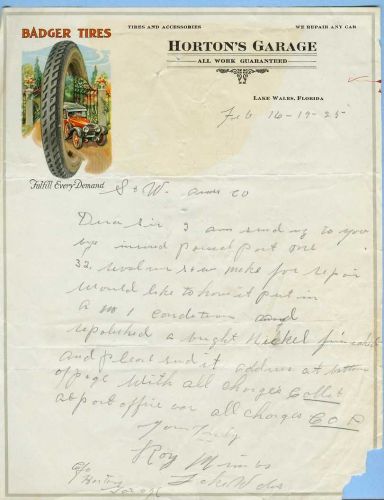 BADGER TIRES
TIRES AND ACCESSORIES
WE REPAIR ANY CAR
HORTON'S GARAGE
ALL WORK GUARANTEED
LAKE WALES, FLORIDA
Feb 16-19-25
Fulfill Every Demand
S & W. arms co
Dear Sir, I am sending to you
by insured parcel post one
32. revolver your make for repair
would like to have it put in
a no 1 condition and
repolished a bright Nickel finished
and please send it address at bottom
of page With all charges Collect
at post office or all charges C.O.D
Yours Truly
Roy
c/o
Hortons
Garage
Lake Wales